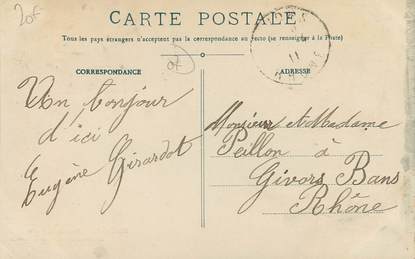 20F
CARTE POSTALE
Tous les pays étrangers n'acceptent pas la correspondance au recto (se renseigner à la Poste)
CORRESPONDANCE
ADRESSE
Un bonjour
d'ici
Eugène Girardot
Monsieur et Madame
Peillon à
Givors Bans
Rhône